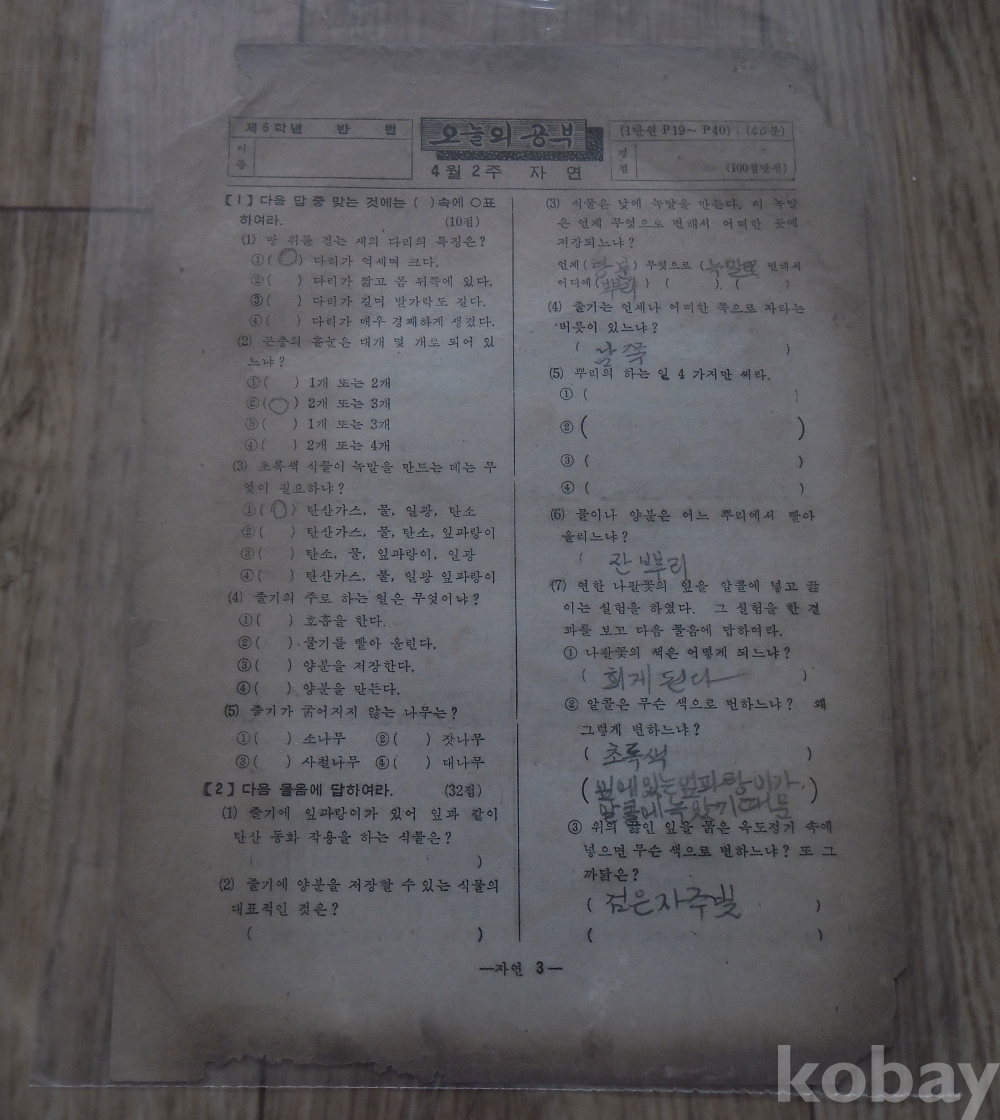 제6학년 반 번
이름
오늘의 공부
4월2주 자연
(1단원 P19~ P40) (40분)
점
(100점만점)
【1】 다음 답 중 맞는 것에는 ( )속에 ○표
하여라. (10점)
(1) 땅 위를 걷는 새의 다리의 특징은?
①( ) 다리가 억세며 크다.
②( ) 다리가 짧고 몸 뒤쪽에 있다.
③( ) 다리가 길며 발가락도 길다.
④( ) 다리가 매우 경쾌하게 생겼다.
(2) 곤충의 홑눈은 대개 몇 개로 되어 있
느냐?
①( ) 1개 또는 2개
②(○) 2개 또는 3개
③( ) 1개 또는 3개
④( ) 2개 또는 4개
(3) 초록색 식물이 녹말을 만드는 데는 무
엇이 필요하냐?
①(○) 탄산가스, 물, 일광, 탄소
②( ) 탄산가스, 물, 탄소, 잎파랑이
③( ) 탄소, 물, 잎파랑이, 일광
④( ) 탄산가스, 물, 일광 잎파랑이
(4) 줄기의 주로 하는 일은 무엇이냐?
①( ) 호흡을 한다.
②( ) 물기를 빨아 올린다.
③( ) 양분을 저장한다.
④( ) 양분을 만든다.
(5) 줄기가 굵어지지 않는 나무는?
①( ) 소나무 ②( ) 잣나무
③( ) 사철나무 ④( ) 대나무
【2】 다음 물음에 답하여라. (32점)
(1) 줄기에 잎파랑이가 있어 잎과 같이
탄산 동화 작용을 하는 식물은?
( )
(2) 줄기에 양분을 저장할 수 있는 식물의
대표적인 것은?
( )
(3) 식물은 낮에 녹말을 만든다. 이 녹말
은 언제 무엇으로 변해서 어떠한 곳에
저장되느냐?
언제( ) 무엇으로 (녹말로) 변해서
어디에(뿌리) ( ) ( )
(4) 줄기는 언제나 어떠한 쪽으로 자라는
버릇이 있느냐?
( 남쪽 )
(5) 뿌리의 하는 일 4 가지만 써라.
① ( )
② ( )
③ ( )
④ ( )
(6) 물이나 양분은 어느 뿌리에서 빨아
올리느냐?
( 잔뿌리
(7) 연한 나팔꽃의 잎을 알콜에 넣고 끓
이는 실험을 하였다. 그 실험을 한 결
과를 보고 다음 물음에 답하여라.
① 나팔꽃의 색은 어떻게 되느냐?
( 희게 된다 )
② 알콜은 무슨 색으로 변하느냐? 왜
그렇게 변하느냐?
( 초록색 )
( 잎에 있는 잎파랑이가
알콜에 녹았기 때문 )
③ 위의 끓인 잎을 묽은 옥도정기 속에
넣으면 무슨 색으로 변하느냐? 또 그
까닭은?
( 검은 자주빛 )
( )
—자연 3—
kobay